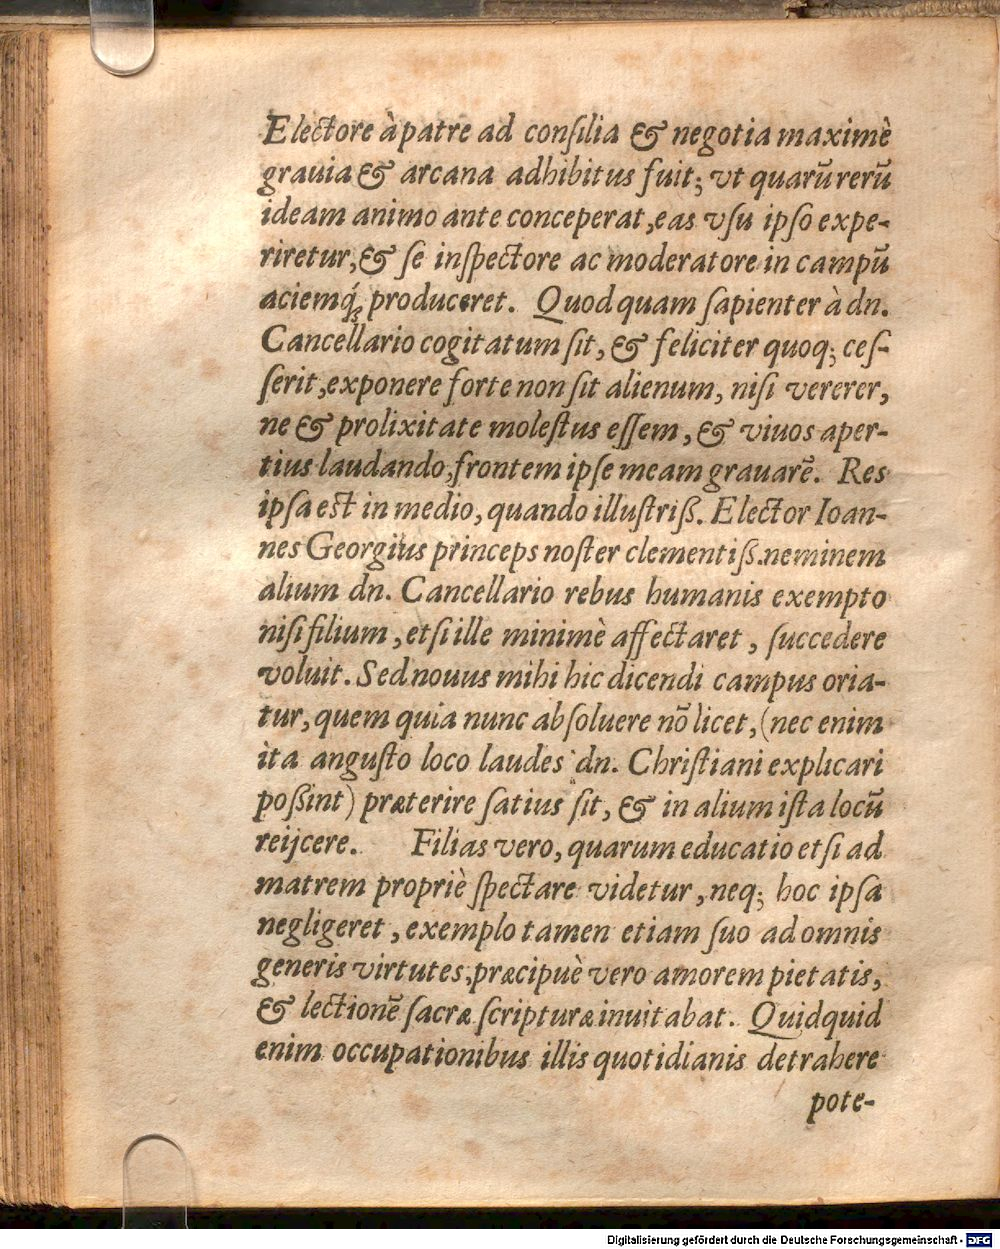 Electore à patre ad conſilia & negotia maximè
grauia & arcana adhibitus fuit; vt quarũ rerũ
ideam animo ante conceperat, eas vſu ipſo expe-
riretur, & ſe inſpectore ac moderatore in campũ
aciemq́; produceret. Quod quam ſapienter à dn.
Cancellario cogitatum ſit, & feliciter quoq; ceſ-
ſerit, exponere forte non ſit alienum, niſi vererer,
ne & prolixitate moleſtus eſſem, & viuos aper-
tius laudando, frontem ipſe meam grauarẽ. Res
ipſa est in medio, quando illuſtriß. Elector Ioan-
nes Georgius princeps noſter clementiß. neminem
alium dn. Cancellario rebus humanis exempto
niſi filium, etſi ille minimè affectaret, ſuccedere
voluit. Sed nouus mihi hic dicendi campus oria-
tur, quem quia nunc abſoluere nõ licet, (nec enim
ita anguſto loco laudes dn. Chriſtiani explicari
poßint) præterire ſatius ſit, & in alium iſta locũ
reijcere. Filias vero, quarum educatio etſi ad
matrem propriè ſpectare videtur, neq; hoc ipſa
negligeret, exemplo tamen etiam ſuo ad omnis
generis virtutes, præcipuè vero amorem pietatis,
& lectionẽ ſacræ ſcripturæ inuitabat. Quidquid
enim occupationibus illis quotidianis detrahere
pote-
Digitalisierung gefördert durch die Deutsche Forschungsgemeinschaft - DFG